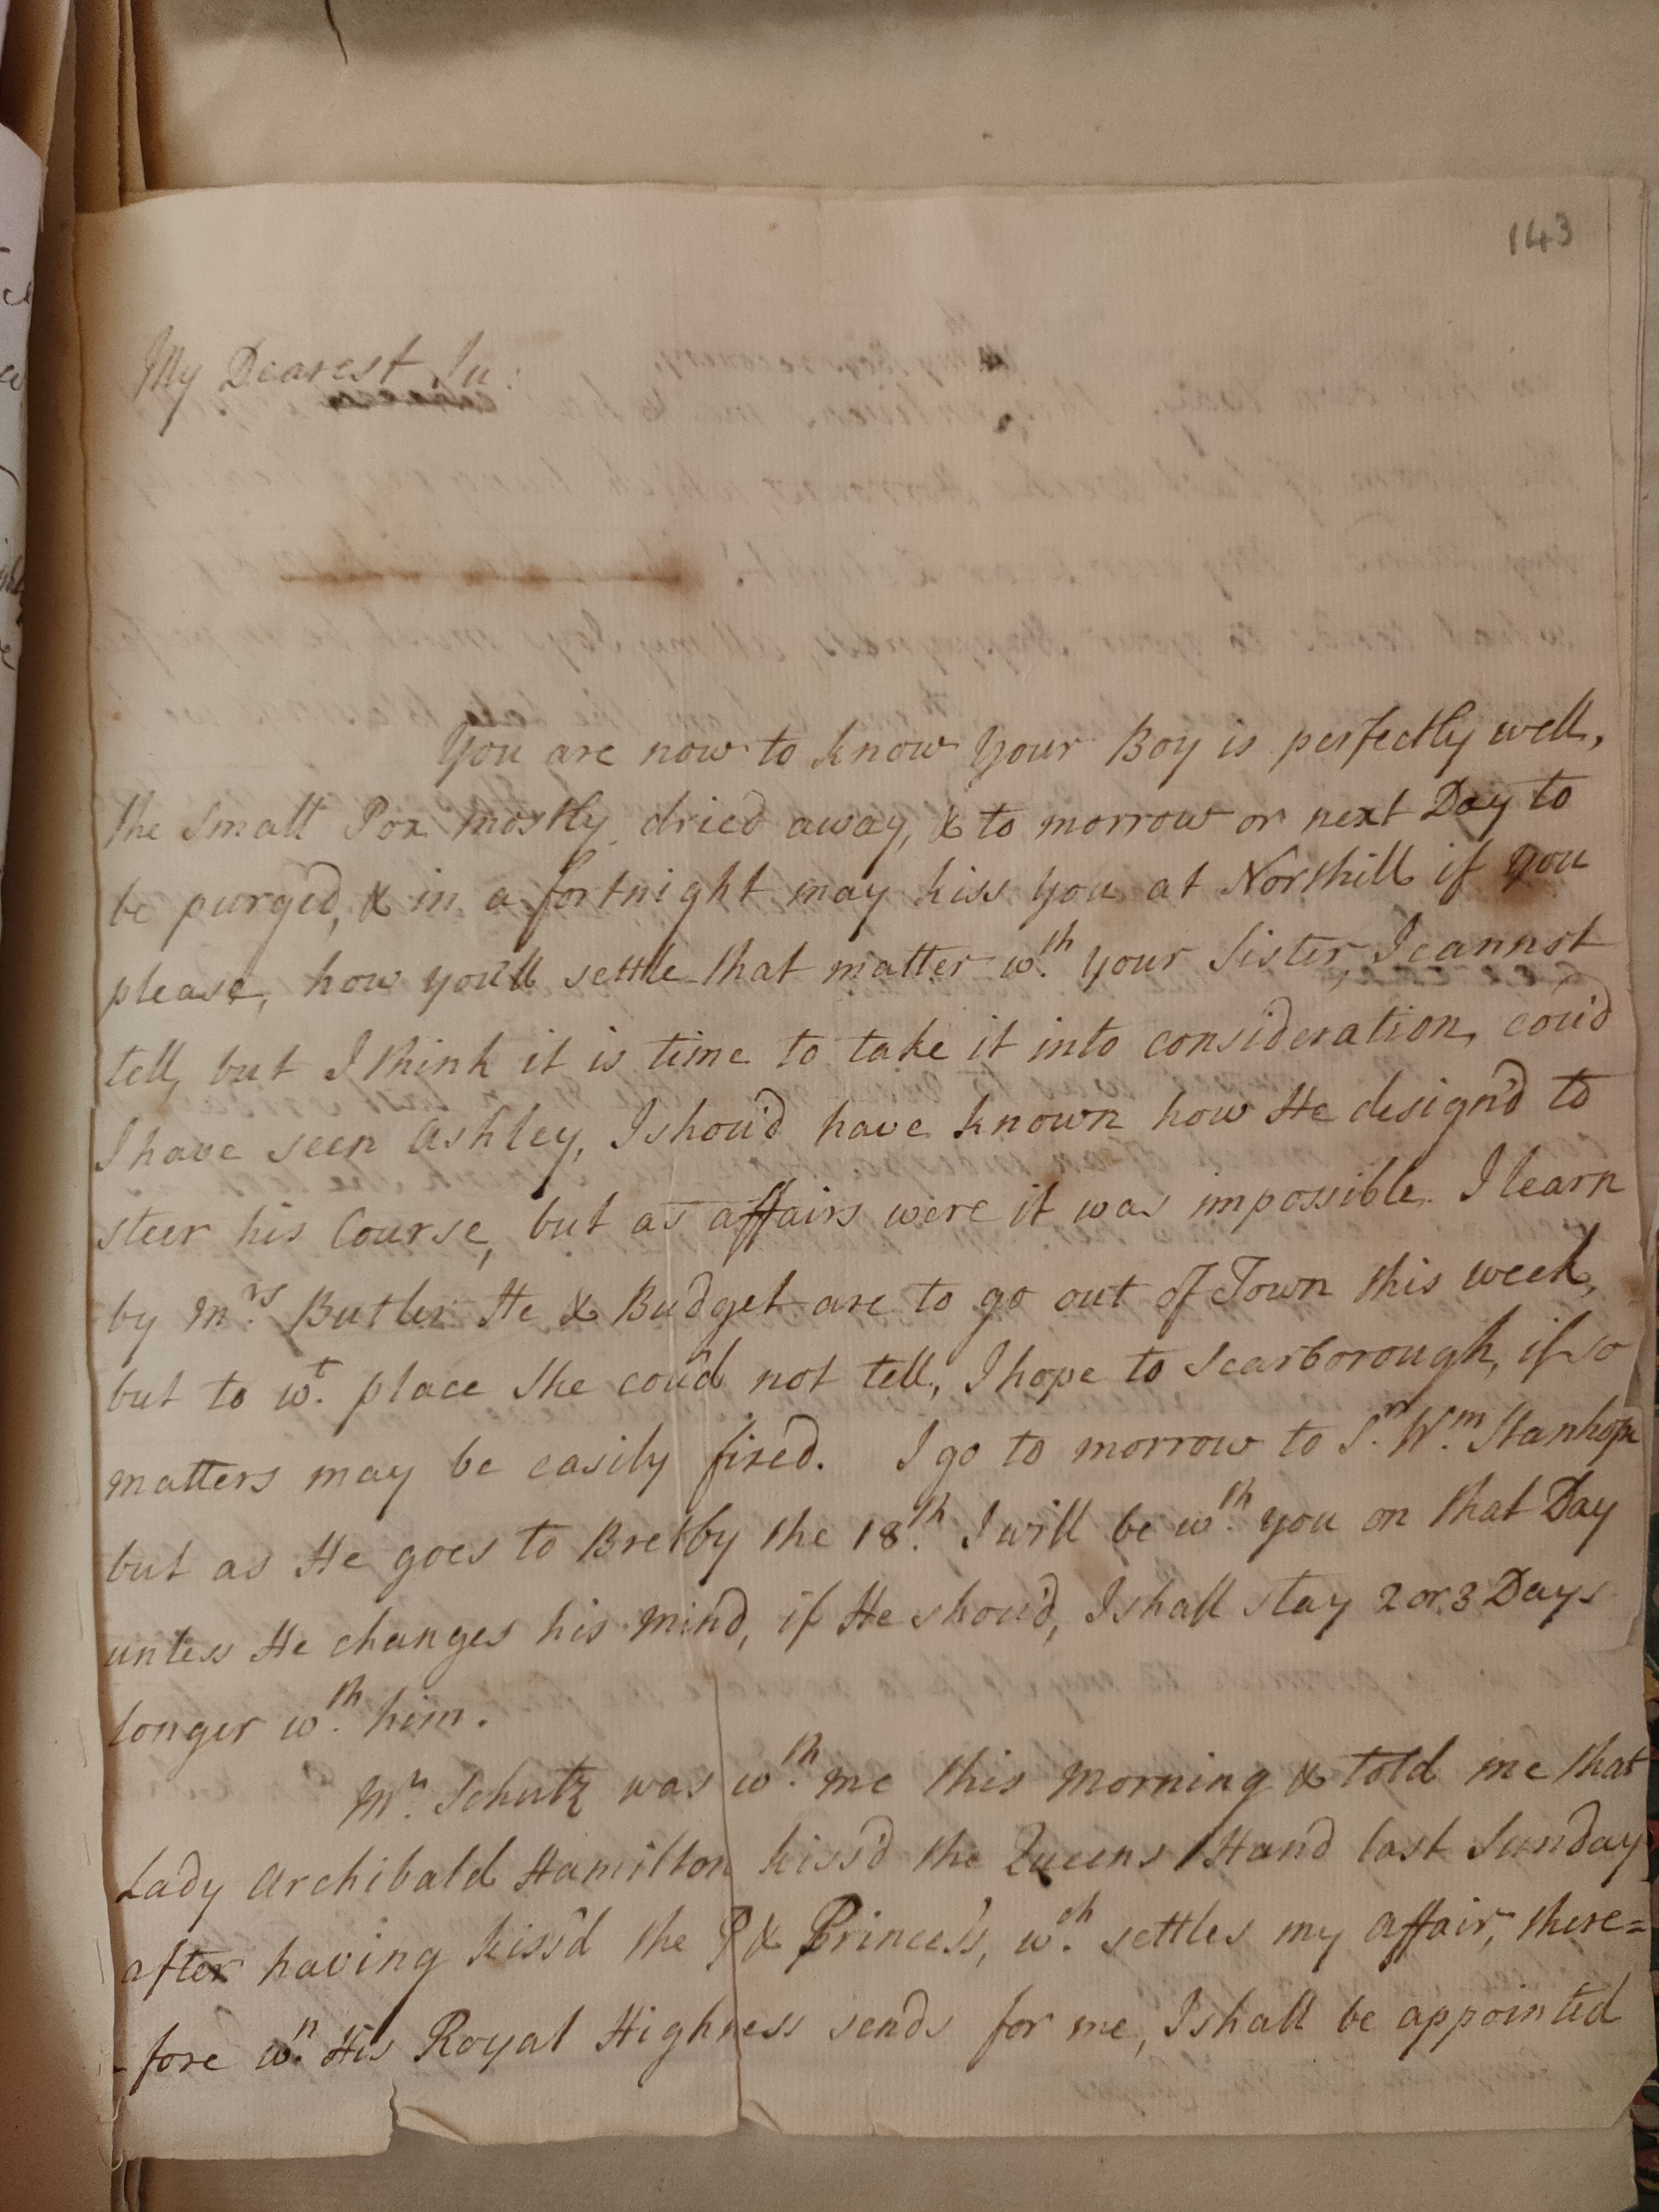 143
My Dearest Ju:
You are now to know your Boy is perfectly well,
the Small Pox mostly dried away, & to morrow or next Day to
be purged, & in a fortnight may kiss you at Northill if you
please, how you'll settle that matter wth. your Sister, I cannot
tell, but I think it is time to take it into consideration, cou'd
I have seen Ashley, I shou'd have known how He design'd to
steer his Course, but as affairs were it was impossible. I learn
by Mrs. Butler He & Budget are to go out of Town this week,
but to wt. place she cou'd not tell, I hope to Scarborough, if so
matters may be easily fixed. I go to morrow to Sr. Wm. Stanhope
but as He goes to Bretby the 18th. I will be wth. you on that Day
unless He changes his mind, if He shou'd, I shall stay 2 or 3 Days
longer wth. him.
Mr. Schutz was wth. me this Morning & told me that
Lady Archibald Hamilton kiss'd the Queens Hand last Sunday
after having kiss'd the P & Princess's, wch. settles my affair, there=
-fore wn. His Royal Highness sends for me, I shall be appointed